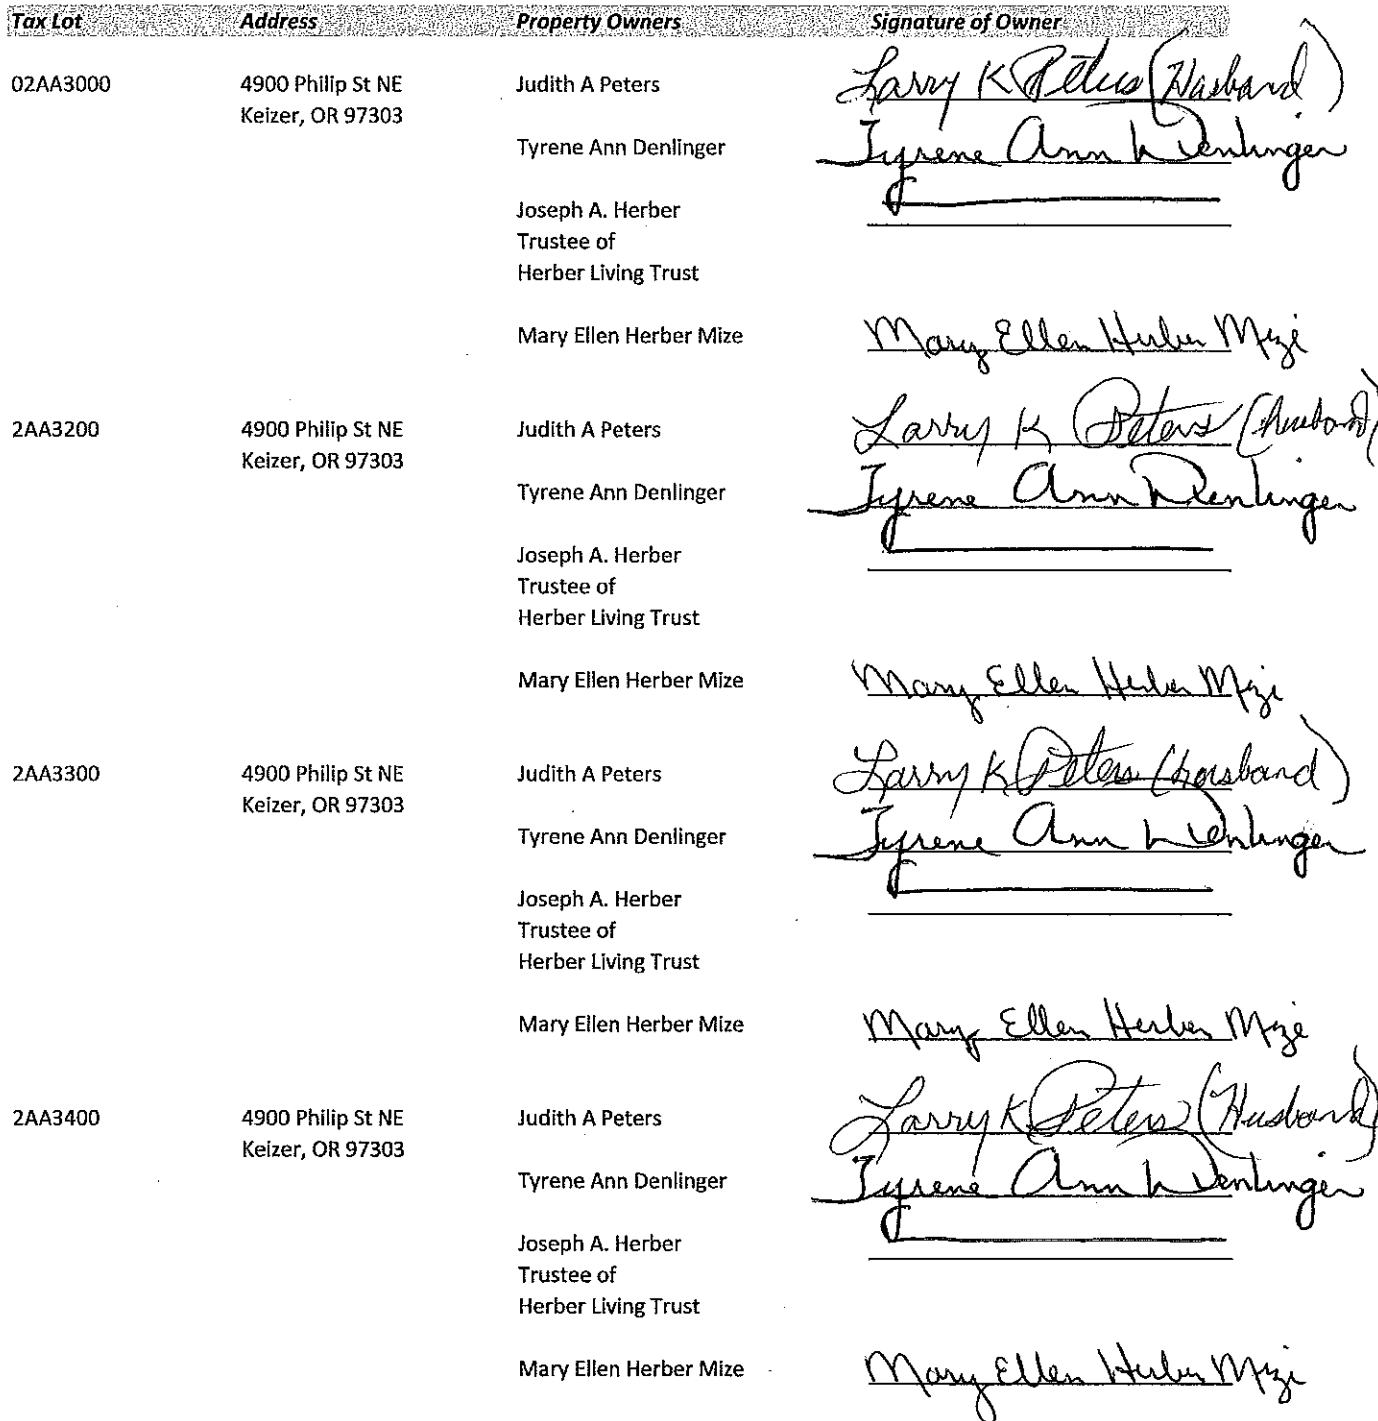 Tax Lot Address Property Owners Signature of Owner
02AA3000 4900 Philip St NE Judith A Peters Larry K Peters (Husband)
Keizer, OR 97303
Tyrene Ann Denlinger Tyrene Ann Denlinger
Joseph A. Herber
Trustee of
Herber Living Trust
Mary Ellen Herber Mize Mary Ellen Herber Mize
2AA3200 4900 Philip St NE Judith A Peters Larry K Peters (husband)
Keizer, OR 97303
Tyrene Ann Denlinger Tyrene Ann Denlinger
Joseph A. Herber
Trustee of
Herber Living Trust
Mary Ellen Herber Mize Mary Ellen Herber Mize
2AA3300 4900 Philip St NE Judith A Peters Larry K Peters (husband)
Keizer, OR 97303
Tyrene Ann Denlinger Tyrene Ann Denlinger
Joseph A. Herber
Trustee of
Herber Living Trust
Mary Ellen Herber Mize Mary Ellen Herber Mize
2AA3400 4900 Philip St NE Judith A Peters Larry K Peters (Husband)
Keizer, OR 97303
Tyrene Ann Denlinger Tyrene Ann Denlinger
Joseph A. Herber
Trustee of
Herber Living Trust
Mary Ellen Herber Mize Mary Ellen Herber Mize